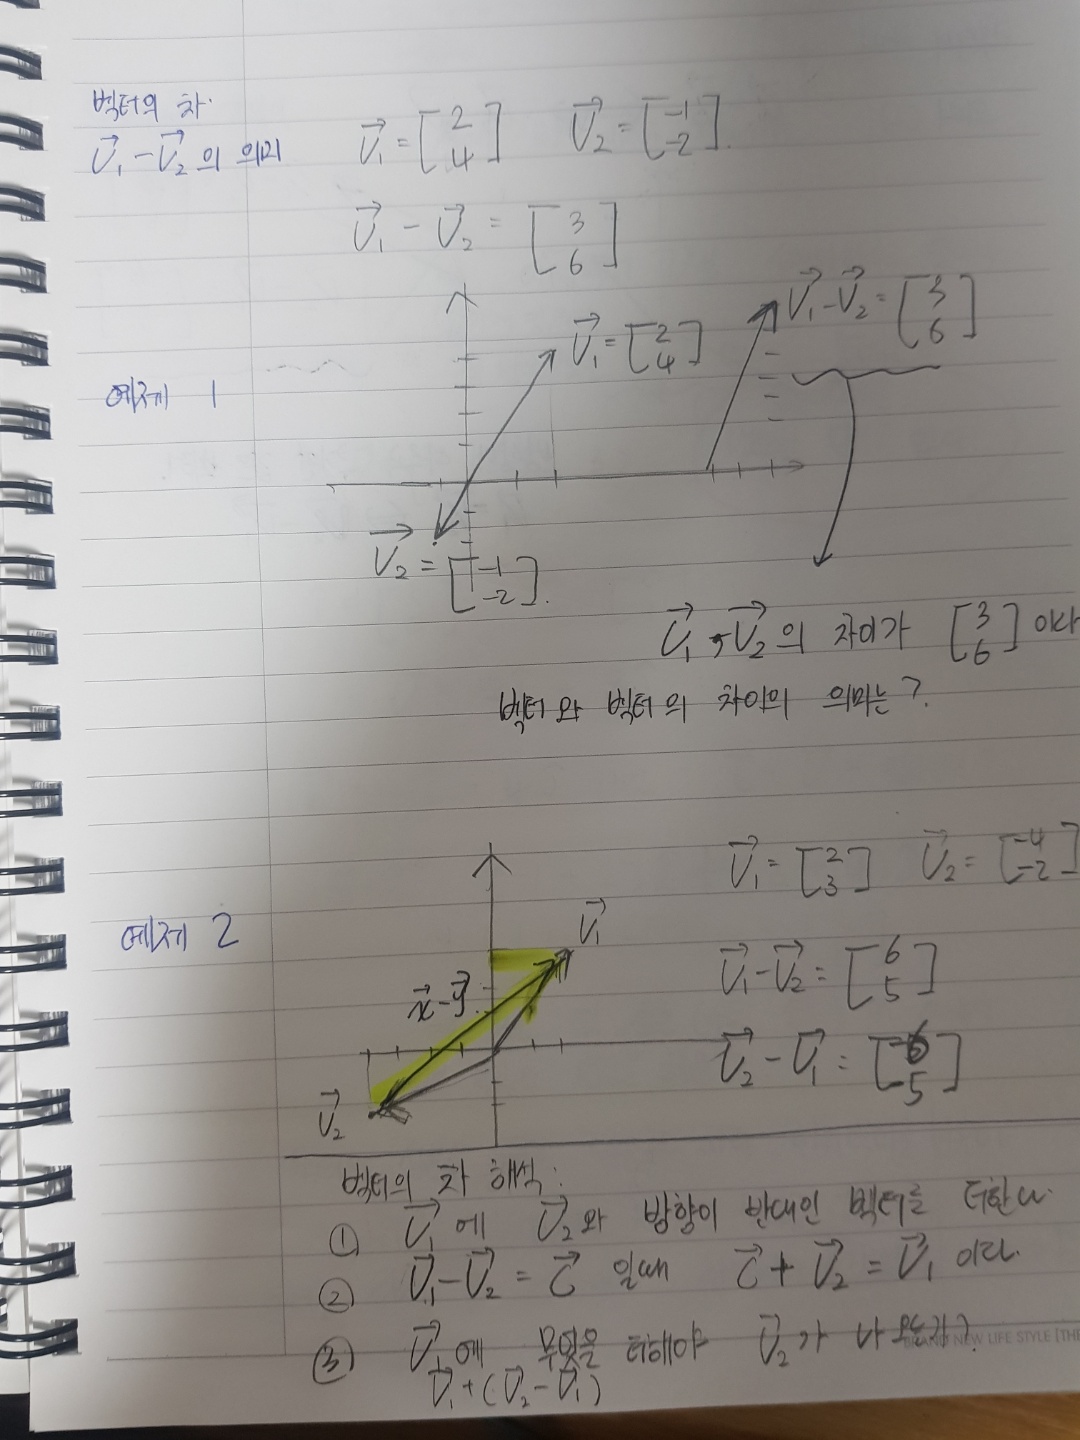 벡터의 차.
V₁ - V₂ 의 의미
V₁ = [2 4] V₂ = [-1 -2].
V₁ - V₂ = [3 6]
V₁ - V₂ = [3 6]
V₁ = [2 4]
예제 1
V₂ = [-1 -2].
V₁, V₂ 의 차이가 [3 6] 이다
벡터와 벡터의 차이의 의미는?
V₁ = [2 3] V₂ = [-4 -2]
예제 2
V₁
V₁ - V₂ = [6 5]
x - y
V₂ - V₁ = [-6 -5]
V₂
벡터의 차 해석.
① V₁ 에 V₂ 와 방향이 반대인 벡터를 더한다.
② V₁ - V₂ = C 일때 C + V₂ = V₁ 이다.
③ V₁ 에 무엇을 더해야 V₂ 가 나오는가?
BRAND NEW LIFE STYLE [THE
V₁ + (V₂ - V₁)